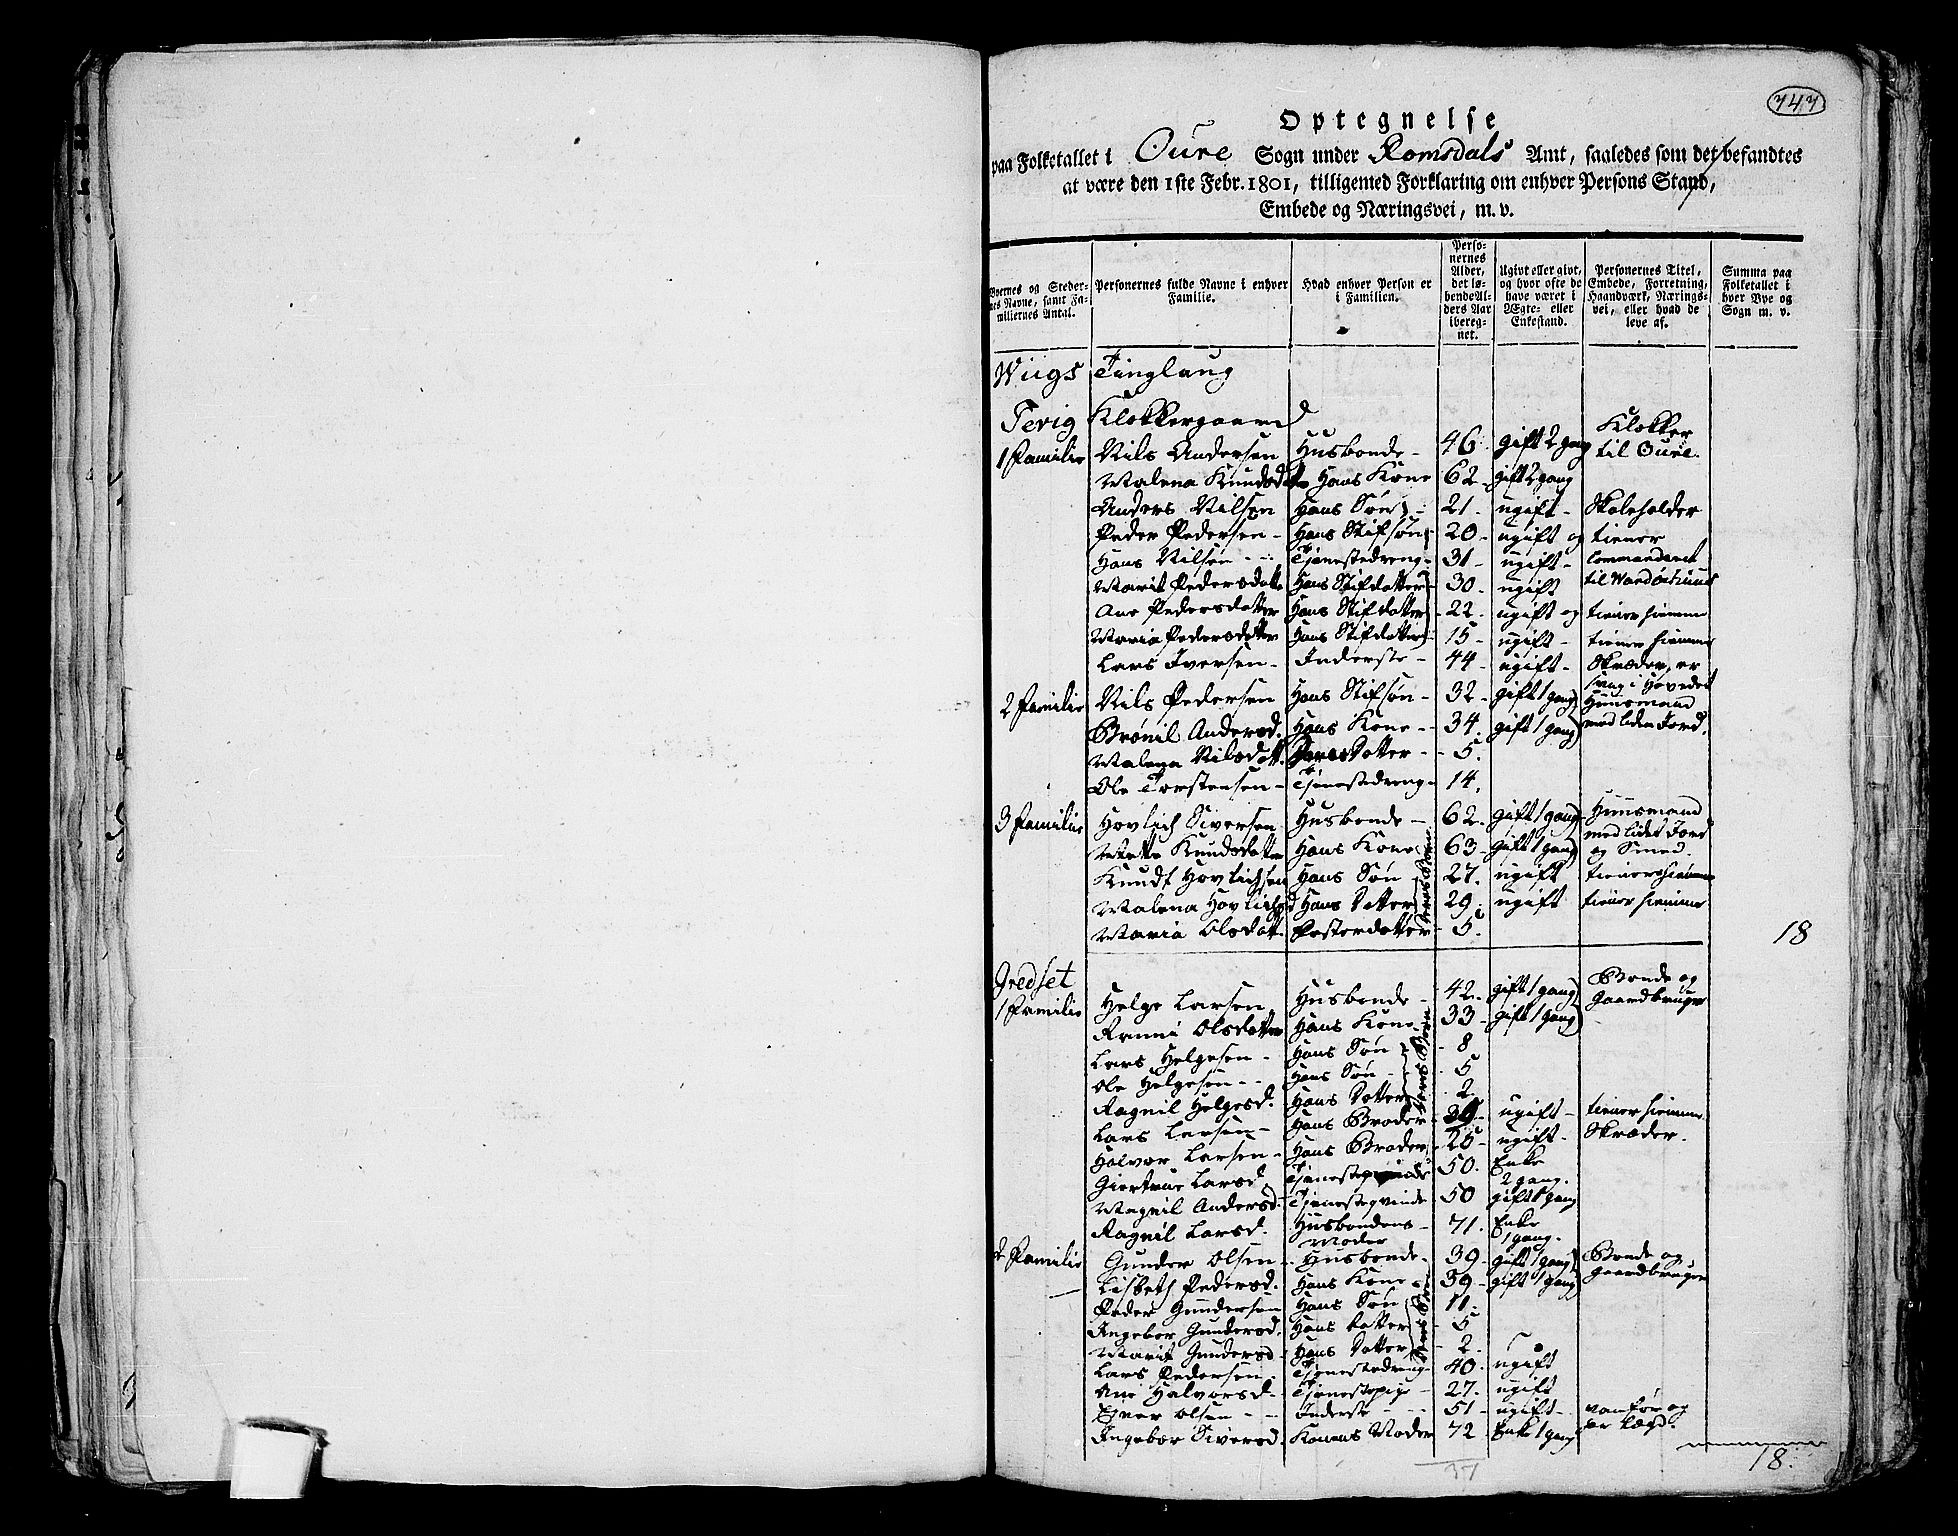 747
Optegnelse
paa Folketallet i Oure Sogn under Romsdals Amt, saaledes som det befandtes
at være den 1ste Febr. 1801, tilligemed Forklaring om enhver Persons Stand,
Embede og Næringsvei, m. v.
Byernes og Stedernes Navne, samt Familiernes Antal. | Personernes fulde Navne i enhver Familie. | Hvad enhver Person er i Familien. | Personernes Alder, det løbende Alders Aar iberegnet. | Ugivt eller givt, og hvor ofte de have været i Ægte- eller Enkestand. | Personernes Titel, Embede, Forretning, Haandværk, Næringsvei, eller hvad de leve af. | Summa paa Folketallet i hver Bye og Sogn m. v.
Wiigs Tinglaug
Tevig Klokkergaard
1 Familie Nils Andersen Husbonde 46 gift 2 gang Klokker til Oure.
Malena Knudsdatter Hans Kone 62 gift 2 gang
Anders Nilsen Hans Søn 21 ugift Skoleholder
Peder Pedersen Hans Stifsøn 20 ugift og tiener
Hans Nilsen Tjenestedreng 31 ugift Commanderet
Marit Pedersdatter Hans Stifdatter 30 ugift til Wardøehuus
Ane Pedersdatter Hans Stifdatter 22 ugift og tiener hiemme
Maria Pedersdatter Hans Stifdatter 15 ugift tiener hiemme
Lars Iversen Inderste 44 ugift Skræder, er svag i Hovedet
2 Familie Nils Pedersen Hans Stifsøn 32 gift 1 gang Huusmand
Brønil Andersd. Hans Kone 34 gift 1 gang med liden Jord.
Malena Nilsdatt. Deres Datter 5.
Ole Torstensen Tjenestedreng 14.
3 Familie Hovlich Siversen Husbonde 62 gift 1 gang Huusmand
Mette Knudsdatter Hans Kone 63 gift 1 gang med lidet Jord og Smed.
Knud Hovlichsen Hans Søn 27. ugift tiener hiemme
Malena Hovlichsd Hans Datter 29. ugift tiener hiemme
Deres Børn
Maria Olsdatt. Fosterdatter 5. 18
Iredset
1 Familie Helge Larsen Husbonde 42. gift 1 gang Bonde og Gaardbruger
Olsdatter Hans Kone 33 gift 1 gang
Lars Helgesen Hans Søn 8
Ole Helgesen Hans Søn 5
Ragnil Helgesd. Hans Datter 2
Deres Børn
Lars Larsen Hans Broder ugift tiener hiemme
Halvor Larsen Hans Broder 25 ugift Skræder.
Giertrue Larsd. Tjenesteqvinde 50. Enke 2 gang.
Magnil Andersd. Tjenesteqvinde 50 gift 1 gang
Ragnil Larsd. Husbondens Moder 71. Enke 1 gang.
2 Familie Gunder Olsen Husbonde 39 gift 1 gang Bonde og
Lisbeth Pedersd. Hans Kone 39 gift 1 gang Gaardbruger
Peder Gundersen Hans Søn 11.
Ingebor Gundersd. Hans Datter 5
Marit Gundersd Hans Datter 2.
Deres Børn
Lars Pedersen Tjenestedreng 40. ugift
Ane Halvorsd Tjenestepige 27. ugift
Iver Olsen Inderste 51 ugift vanfør og
Ingebor Siversd. Konens Moder 72 Enke 1 gang er Lægd.
18.
37